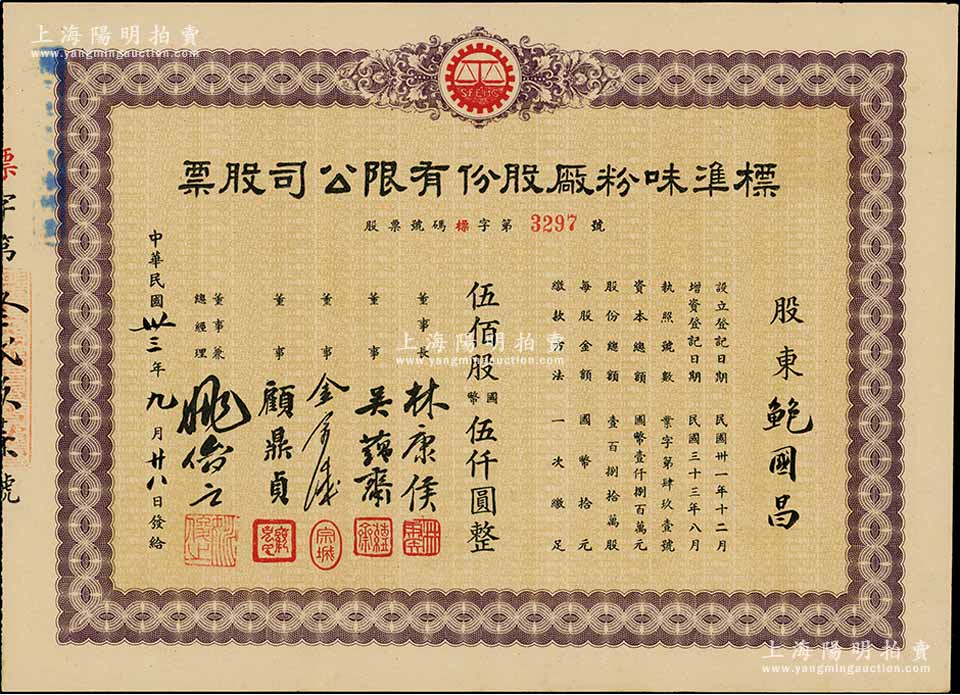 上海陽明拍賣
www.yangmingauction.com
標準味粉廠股份有限公司股票
股票號碼標字第 3297 號
股東 鮑國昌
設立登記日期 民國卅一年十二月
增資登記日期 民國三十三年八月
執照號數 業字第肆玖壹號
資本總額 國幣壹仟捌百萬元
股份總額 壹百捌拾萬股
每股金額 國幣拾元
繳款方法 一次繳足
伍佰股國幣伍仟圓整
董事長 林康侯
董事 吳蘊齋
董事 金宗城
董事 顧鼎貞
董事兼總經理 姚俊之
中華民國卅三年九月廿八日發給
上海陽明拍賣
www.yangmingauction.com
上海陽明拍賣
www.yangmingauction.com